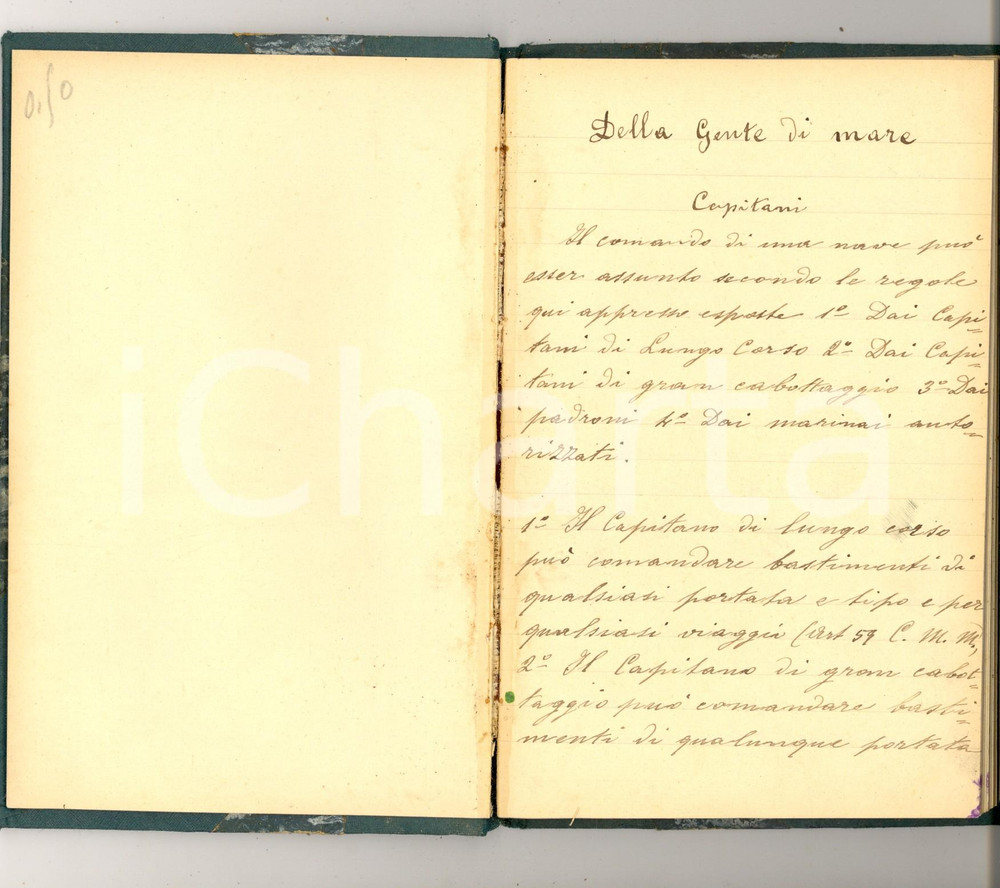 0,50
Della Gente di mare
Capitani
Il comando di una nave può
esser assunto secondo le regole
qui appresso esposte 1º Dai Capi=
tani di Lungo Corso 2º Dai Capi=
tani di gran cabottaggio 3º Dai
padroni 4º Dai marinai auto=
rizzati.
1º Il Capitano di lungo corso
può comandare bastimenti di
qualsiasi portata e tipo e per
qualsiasi viaggii (Art 59 C. M. M.)
2º Il Capitano di gran cabot=
taggio può comandare basti=
menti di qualunque portata
iCharta